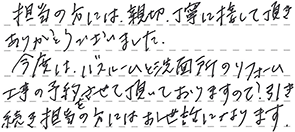 担当の方には、親切、丁寧に接して頂き
ありがとうございました。
今度は、バスルームと洗面所のリフォーム
工事の予約をさせて頂いておりますので、引き
続き担当の方にはお世話になります。